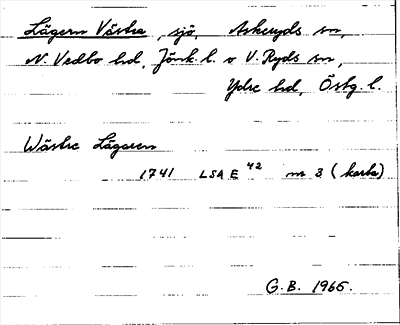 Lägern Västra, sjö, Askeryds sn,
N. Vedbo hd, Jönk. l. o V. Ryds sn,
Ydre hd, Östg. l.
Wästre Lägeren
1741 LSA E 42 nr 3 (karta)
G.B. 1965.